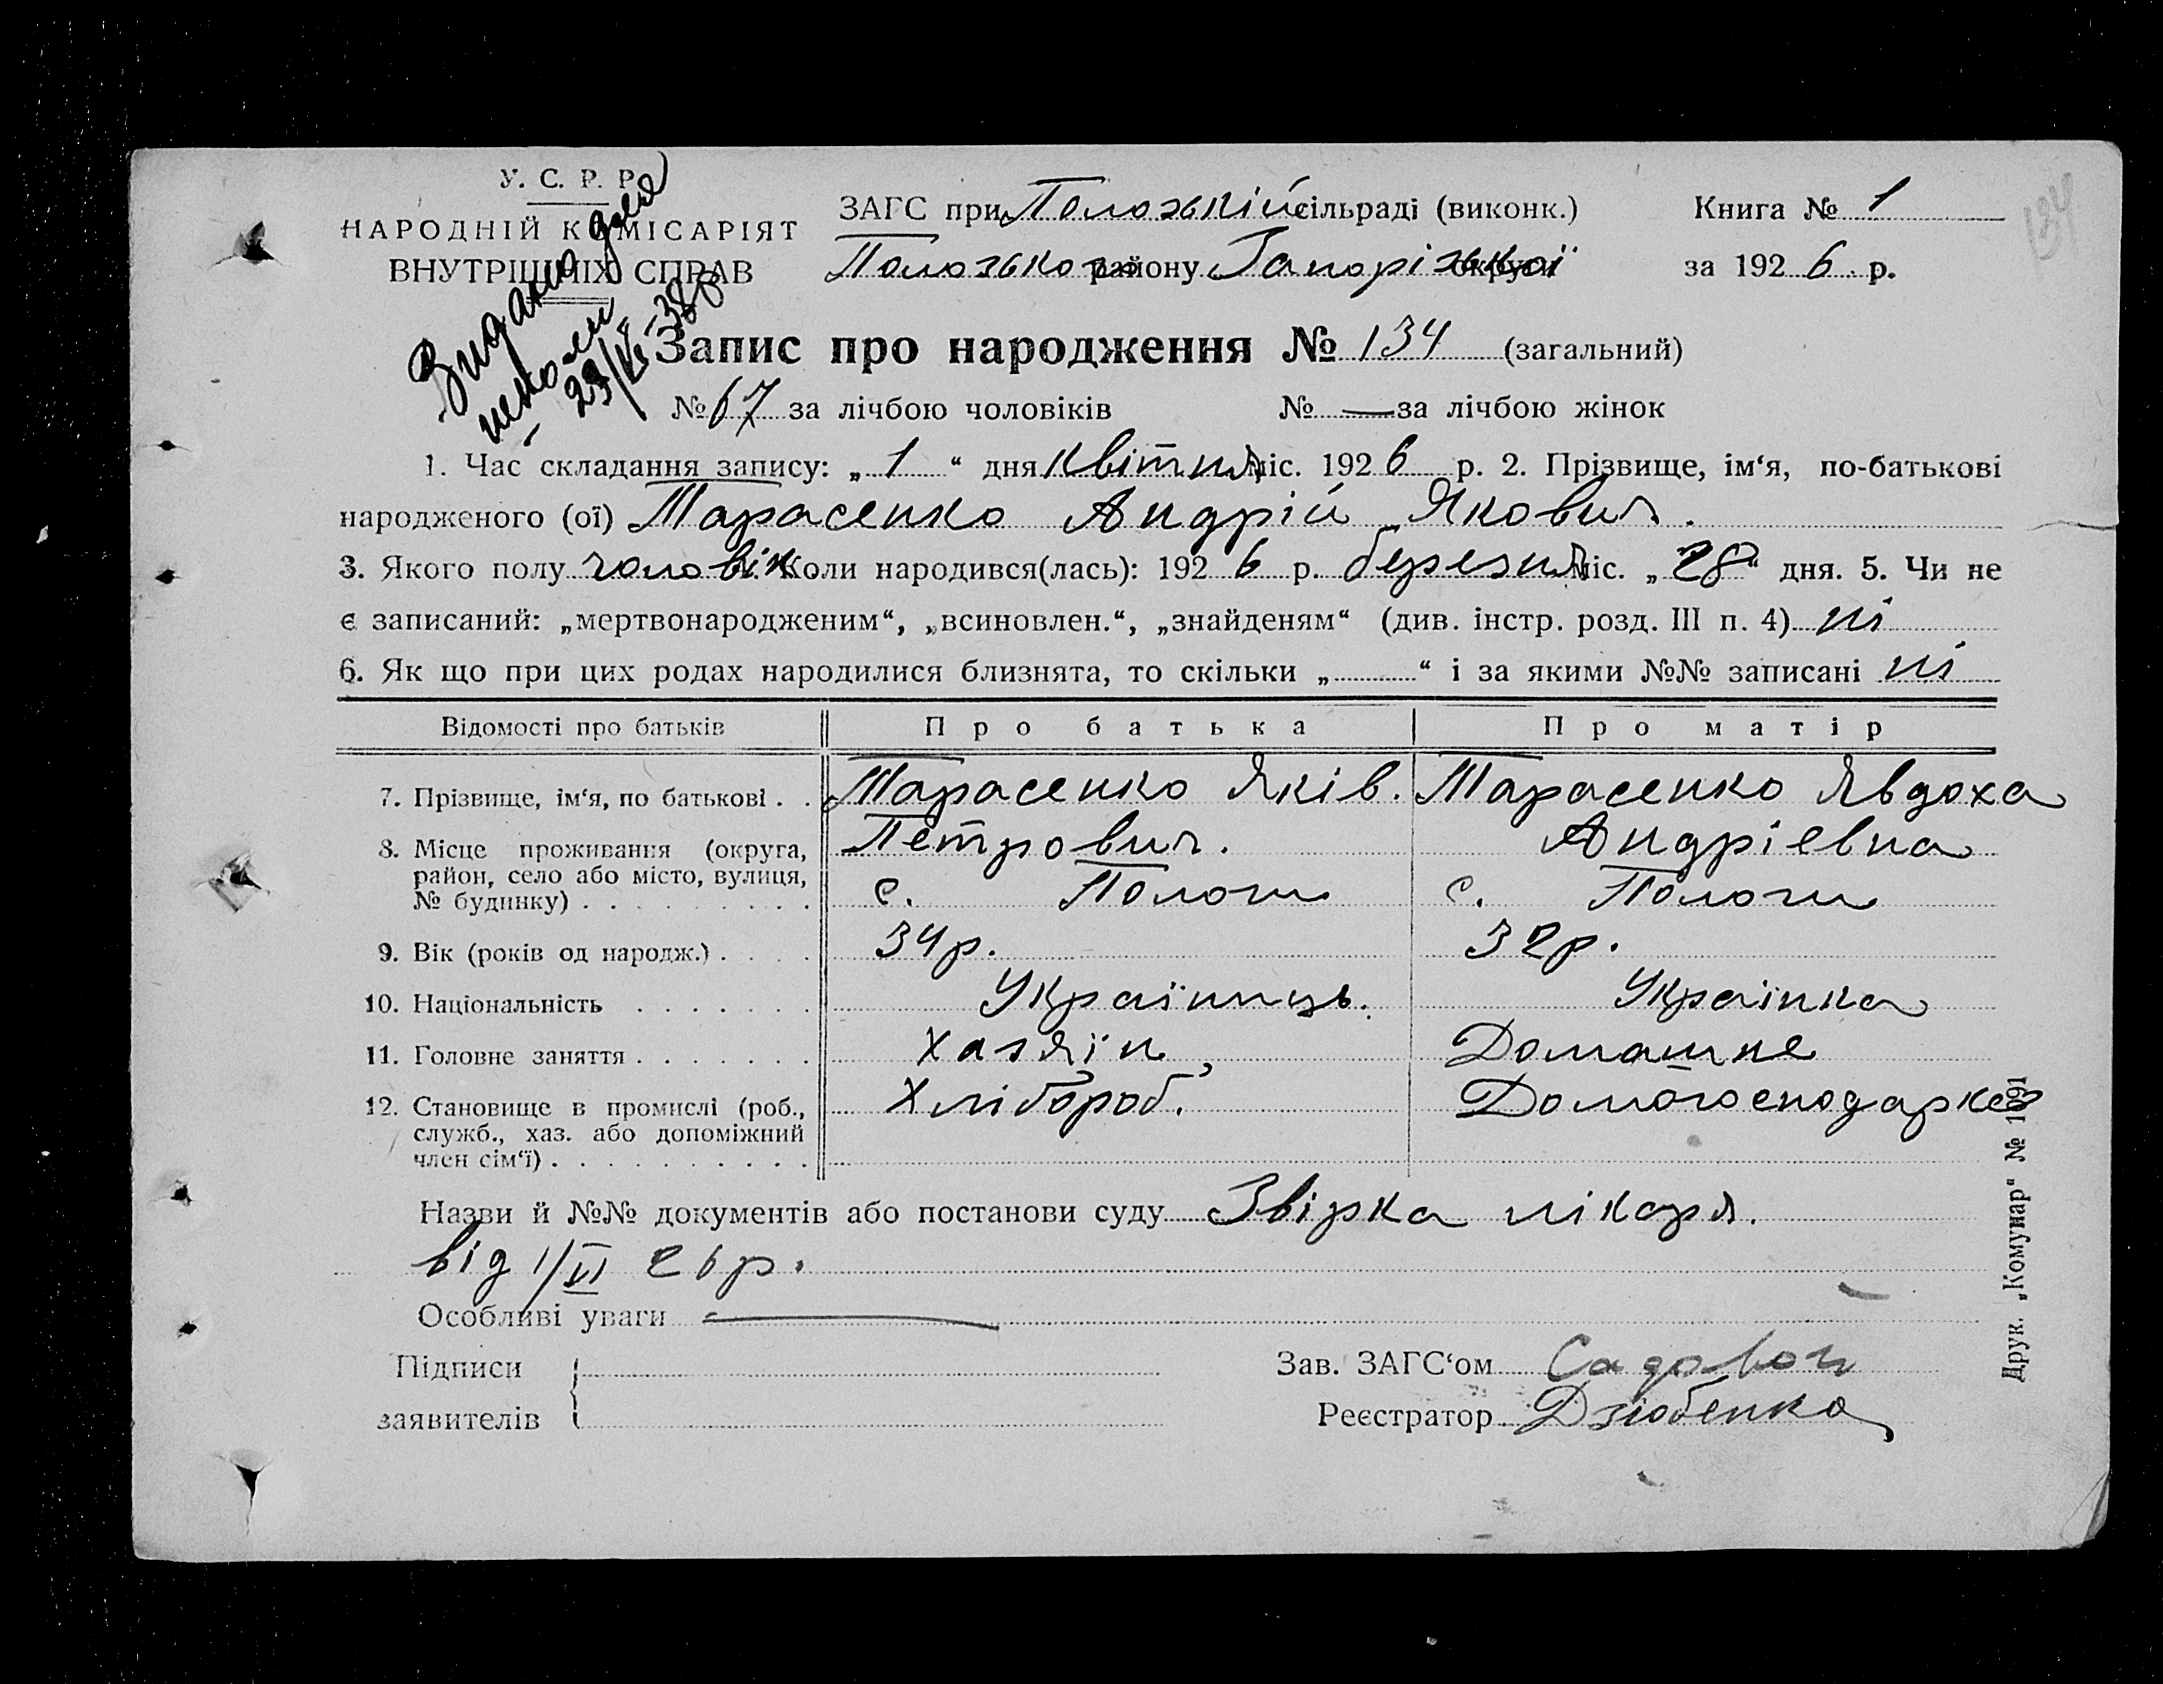 У. С. Р. Р.
НАРОДНІЙ КОМІСАРІЯТ
ВНУТРІШНІХ СПРАВ
Видано
23/VI-38р
ЗАГС при Положькій сільраді (виконк.)
Положького району Запоріжької округи
Книга № 1
за 1926 р.
134
Запис про народження № 134 (загальний)
№ 67 за лічбою чоловіків № — за лічбою жінок
1. Час складання запису: „ 1 “ дня квітня міс. 1926 р. 2. Прізвище, ім‘я, по-батькові
народженого (ої) Тарасенко Андрій Якович.
3. Якого полу чоловік. Коли народився(лась): 1926 р. березня міс. „28“ дня. 5. Чи не
є записаний: „мертвонародженим“, „всиновлен.“, „знайденям“ (див. інстр. розд. III п. 4) ні
6. Як що при цих родах народилися близнята, то скільки „..........“ і за якими №№ записані ні
Відомості про батьків Про батька Про матір
7. Прізвище, ім‘я, по батькові . . Тарасенко Яків. Тарасенко Явдоха
Петрович. Андріевна
8. Місце проживання (округа,
район, село або місто, вулиця,
№ будинку) . . . . . . . . . с. Пологи с. Пологи
9. Вік (років од народж.) . . . . 34р. 32р.
10. Національність . . . . . . . Українець. Українка
11. Головне заняття . . . . . . . Хазяїн, Домашне
12. Становище в промислі (роб., Хлібороб. Домогосподарка
служб., хаз. або допоміжний
член сім‘ї) . . . . . . . . . .
Назви й №№ документів або постанови суду Звірка лікаря.
від 1/VI 26р.
Особливі уваги —
Підписи
заявителів
Зав. ЗАГС‘ом
Реєстратор Дзюбенко
Друк. „Комунар“ № 1091